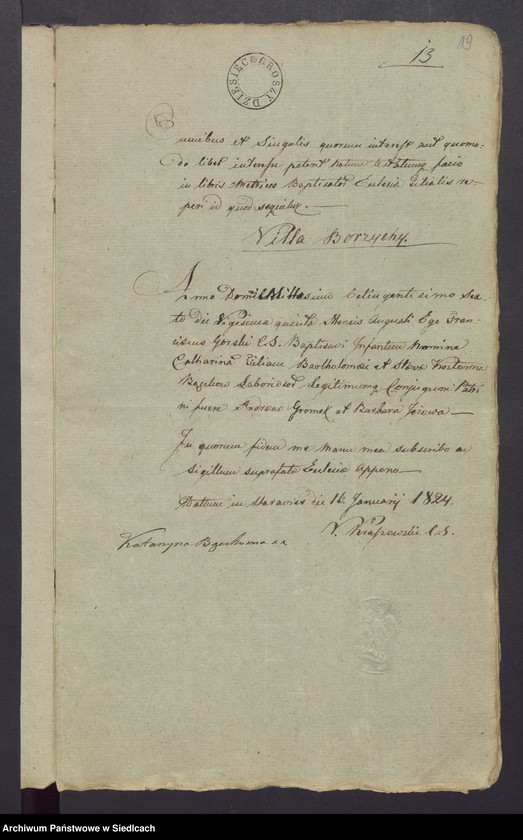 19
13
DZIESIĘC GROSZY
Omnibus et Singulis quorum interest aut quomo-
do libet interesse potent notum facio
in libris Metrices Baptisator Eclesia Filialis re-
peri id quod sequitur. —
Villa Borzychy.
Anno Domi Millesimo Octingentesimo Sex-
to die Vigesima quinta Mensis Augusti Ego Fran-
ciscus Gorski C.S. Baptisavi Infantem Nomine
Catharina Filiam Bartholomei et
Laborios Legitimorum Conjugum Patri
ni fuere Andreas Gromek et Barbara —
In quorum fidem me Manu mea subscribo ac
Sigillum suprafata Eclesia appono —
Datum in die 16 Januarij 1824.
C.S.
Katarzyna
Archiwum Państwowe w Siedlcach